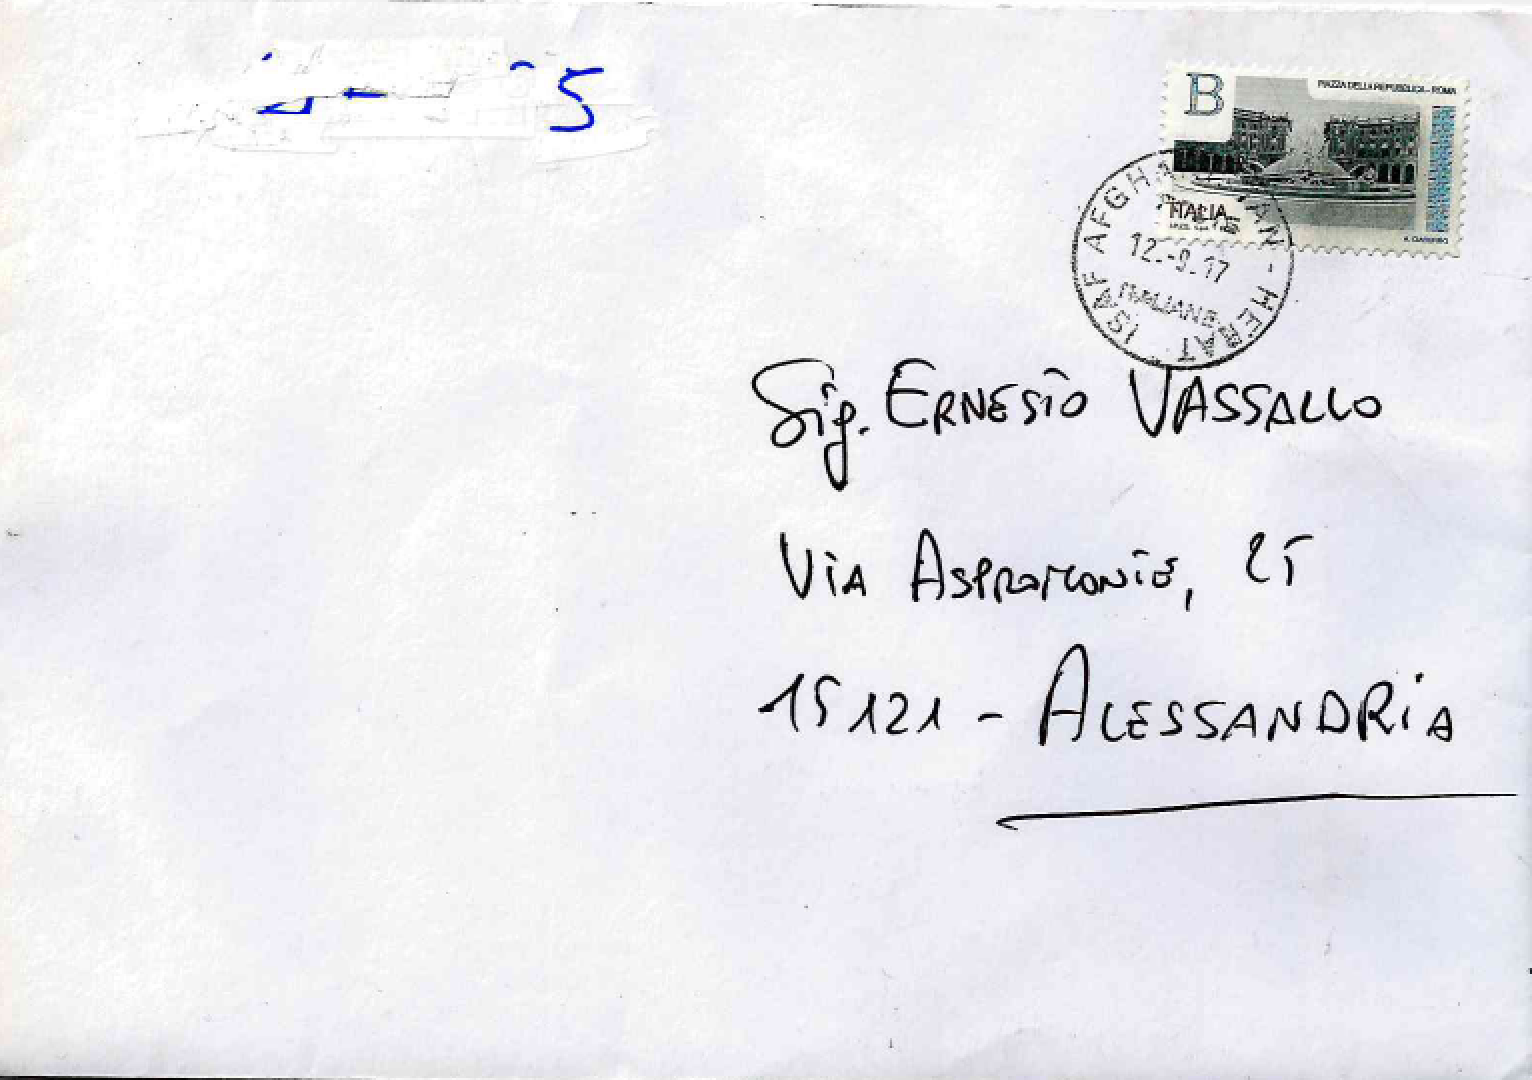 5
B
PIAZZA DELLA REPUBBLICA - ROMA
ITALIA
ISAF AFGHANISTAN - HERAT
12.-9.17
ITALIANE
Sig. ERNESTO VASSALLO
VIA ASPROMONTE, 25
15121 - ALESSANDRIA